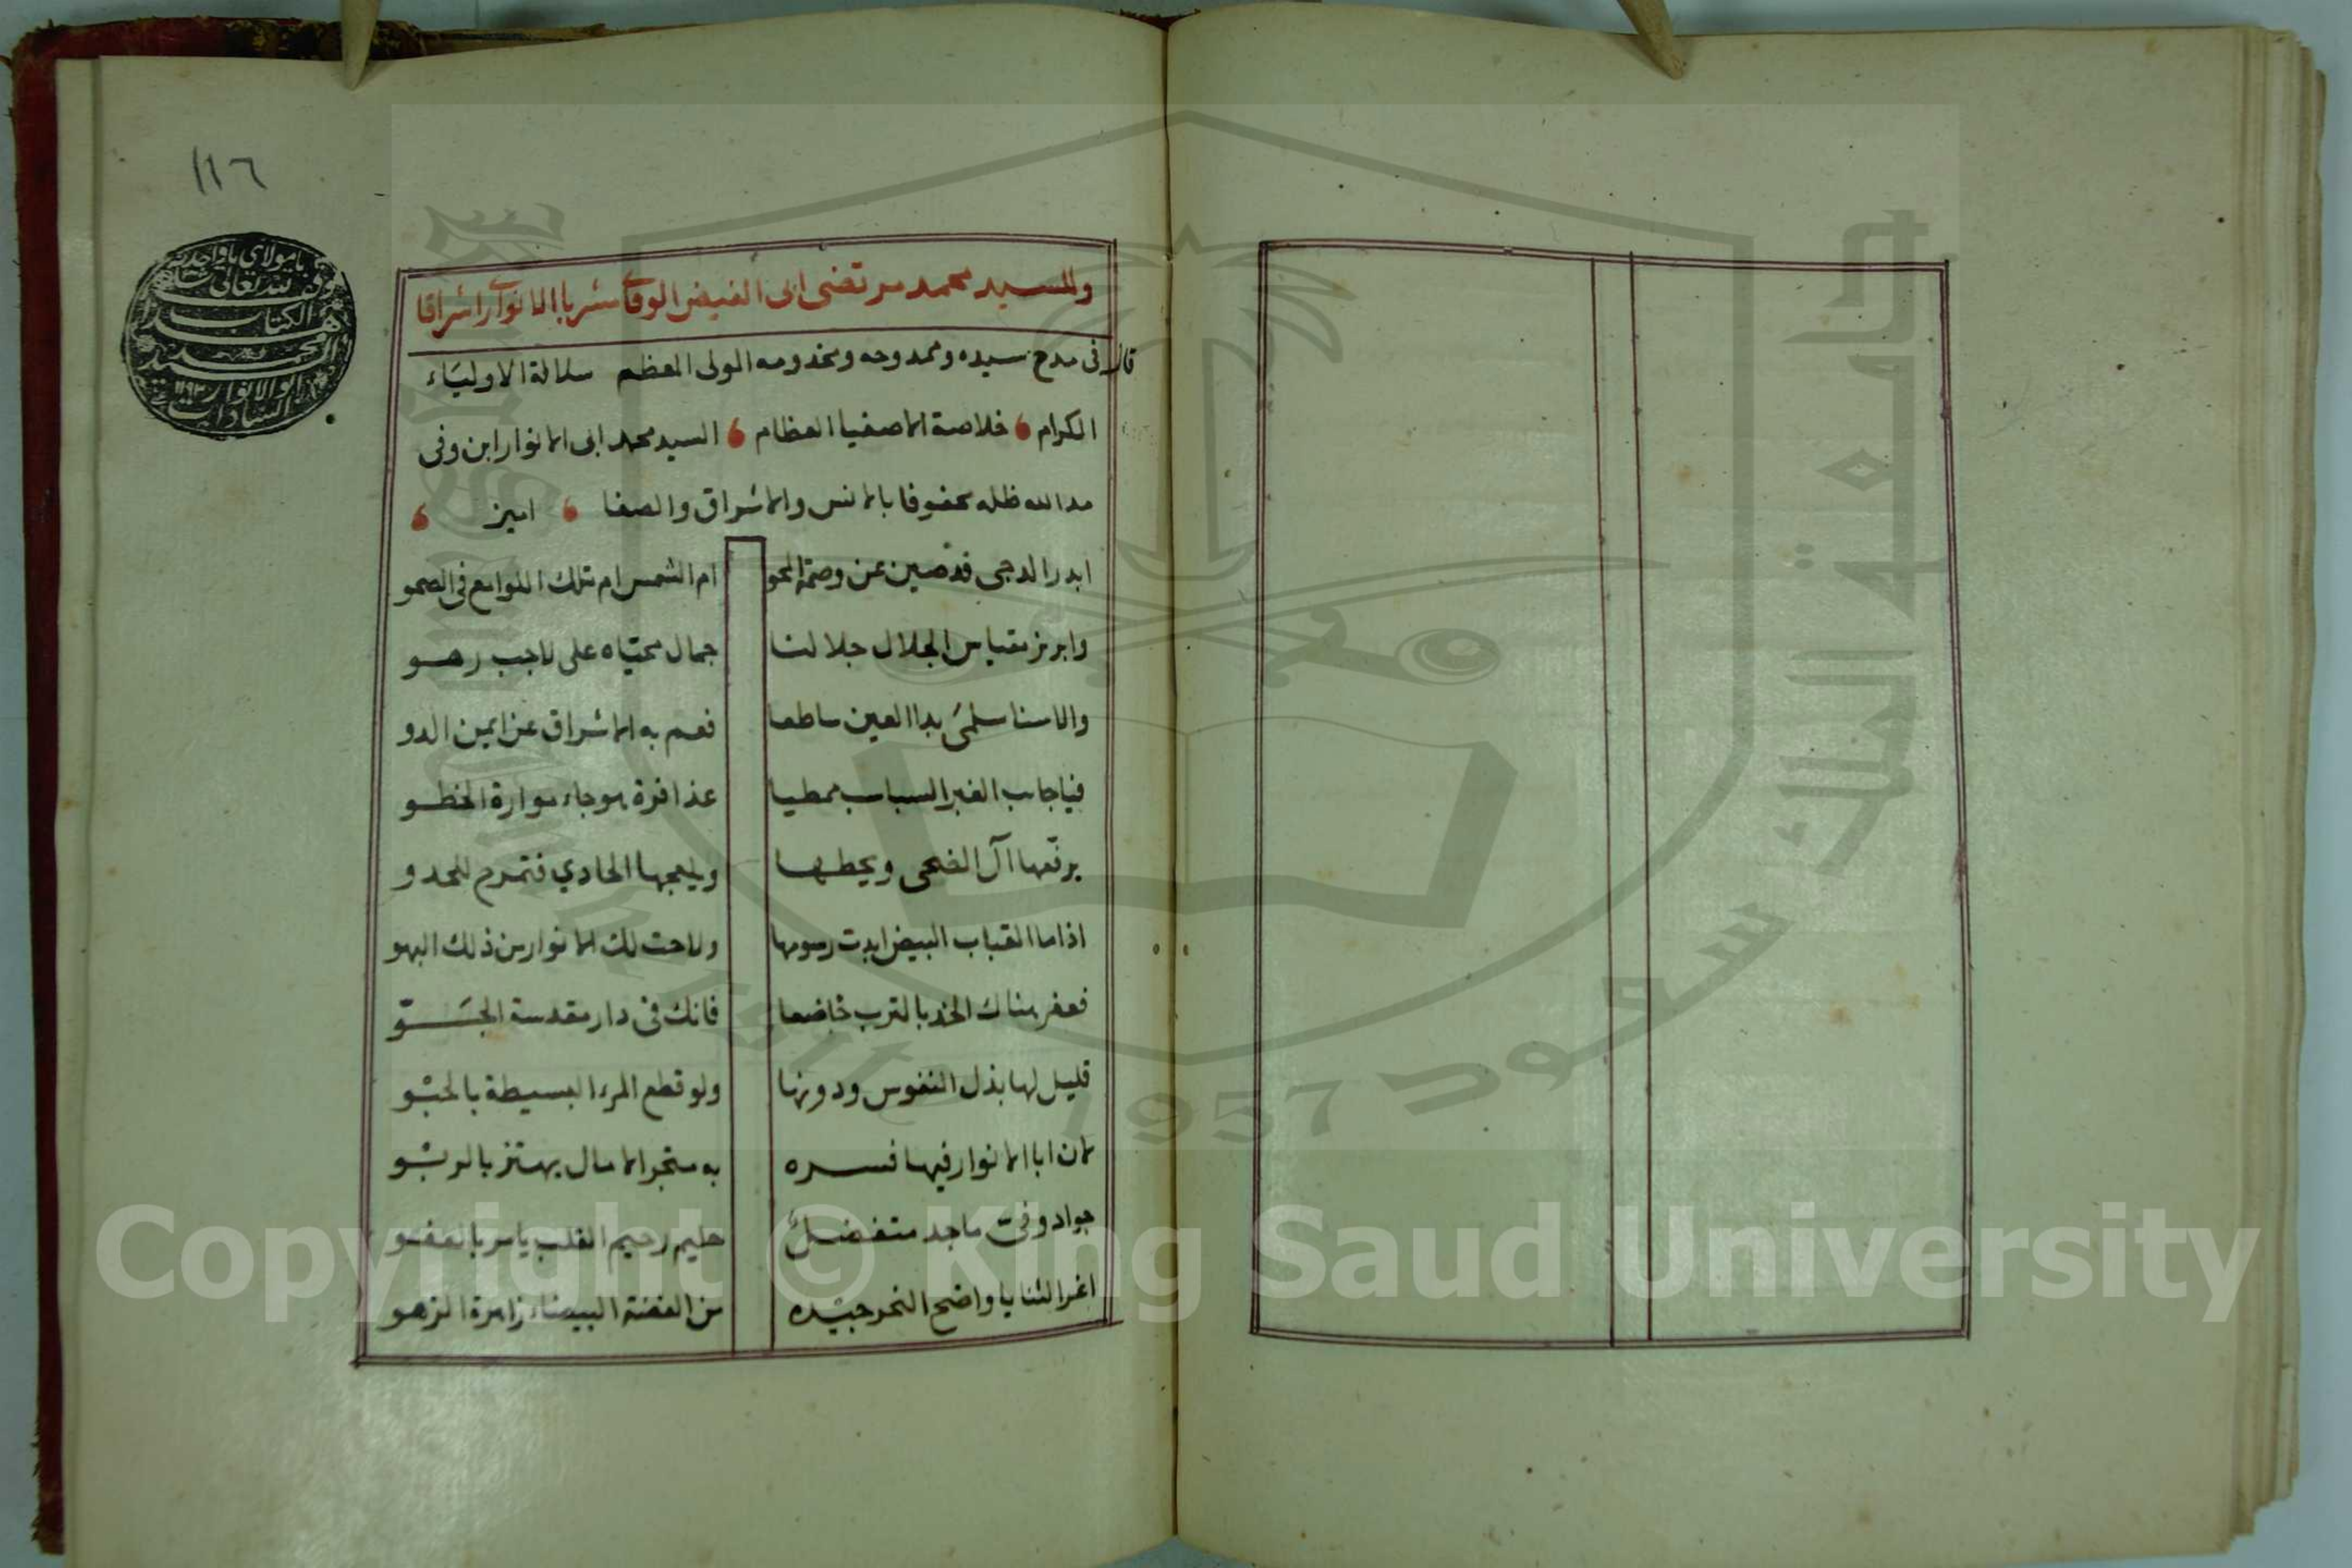 ١١٦
يا مولاي يا واحد
وقف لله تعالى
هذا الكتاب
محمد
ابو الانوار
السادات
وللسيد محمد مرتضى ابى الفيض الوفاى مشربا الانوارى اشراقا
قال فى مدح سيده وممدوحه ومخدومه المولى المعظم سلالة الاولياء
الكرام ، خلاصة الاصفيا العظام ، السيد محمد ابى الانوار ابن وفى
مد الله ظله محفوفا بالانس والاشراق والصفا ، امين ،
ابدر الدجى قد صين عن وصمة المحو ام الشمس ام تلك اللوامع فى الصحو
وابرز مقباس الجلال جلا لنا جمال محياه على لاحب رهو
والا سنا سلمى بدا العين ساطعا فعم به الاشراق عن ايمن الدو
فيا جايب الغبر السباسب ممطيا عذافرة هوجاء موارة الخطو
يرقعها آل الضحى ويحطها ويلعجها الحادي فتمرم للحدو
اذا ما القباب البيض ابدت رسومها ولاحت لك الانوار من ذلك البهو
فعفر هناك الخد بالترب خاضعا فانك فى دار مقدسة الجَوّ
قليل لها بذل النفوس ودونها ولو قطع المرء البسيطة بالحبْو
لان ابا الانوار فيها فسره به متجر الامال يهتز بالربْو
جواد وفىّ ماجد متفضلٌ حليم رحيم القلب يامر بالعفو
اغر الثنايا واضح النحر جيّده من الفضة البيضاء زاهرة الزهو
Copyright © King Saud University
جامعة الملك سعود
King Saud University
1957